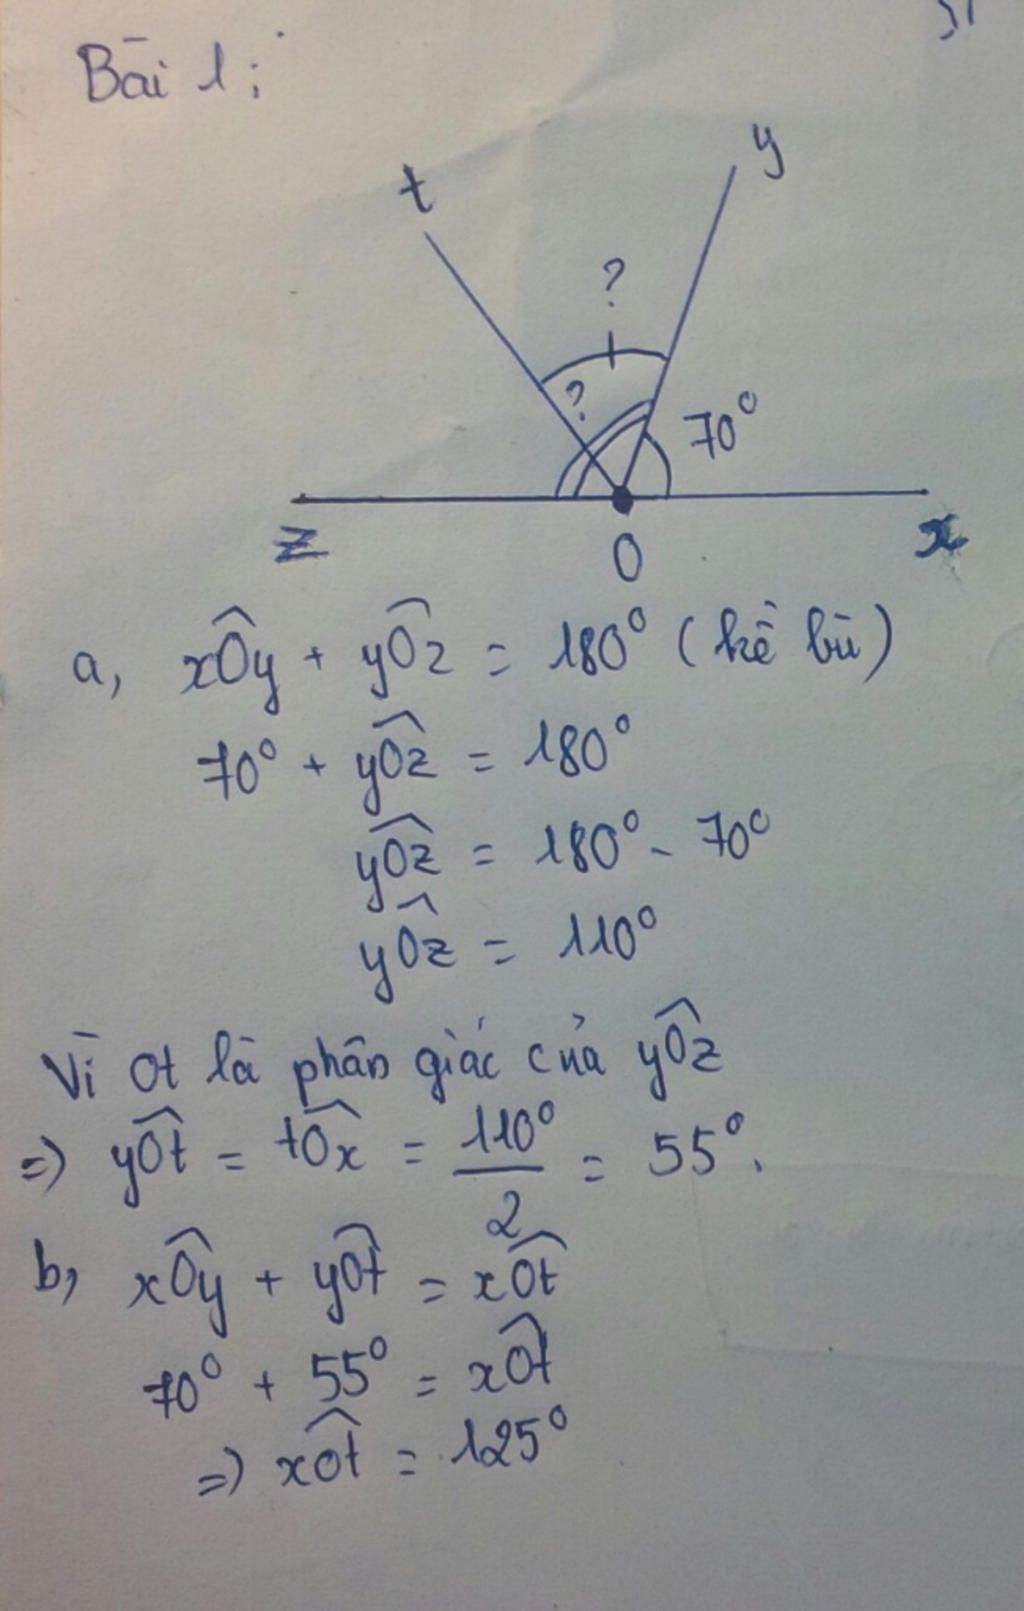 Bài 1:
t
y
?
?
70°
z
O
x
a, xÔy + yÔz = 180° (kề bù)
70° + yÔz = 180°
yÔz = 180° - 70°
yÔz = 110°
Vì Ot là phân giác của yÔz
=> yÔt = tÔx = 110°/2 = 55°.
b, xÔy + yÔt = xÔt
70° + 55° = xÔt
=> xÔt = 125°